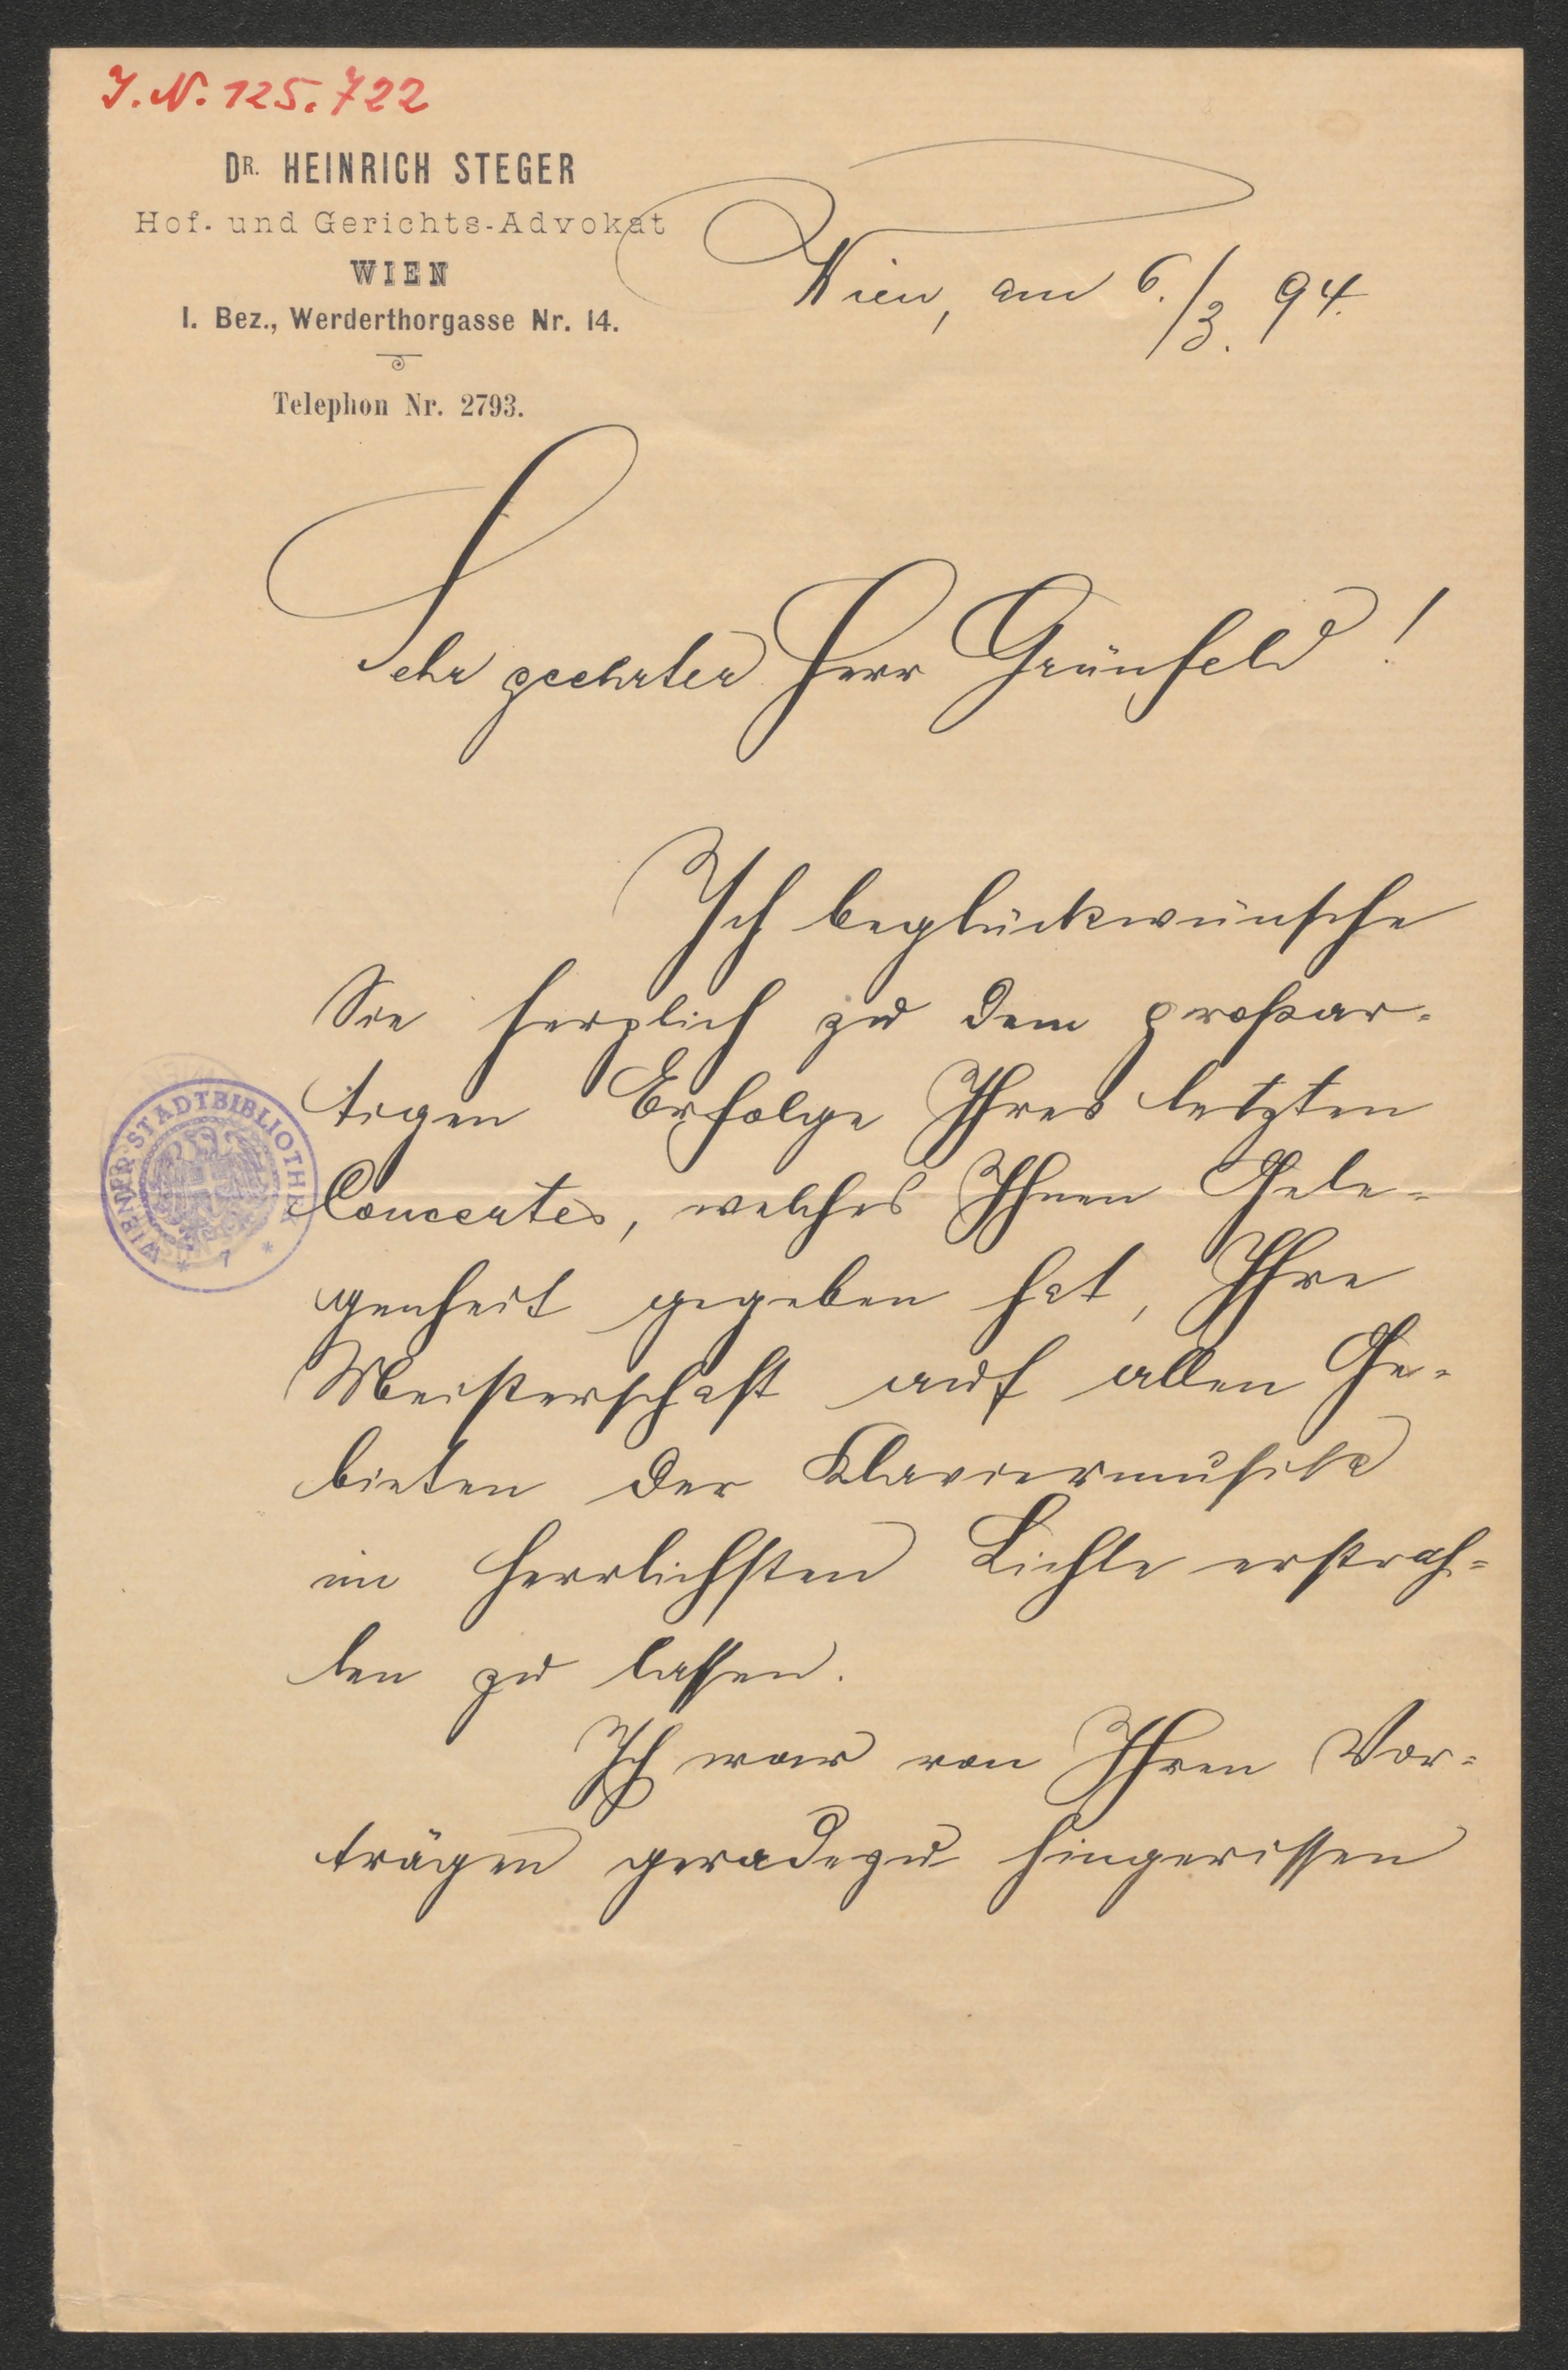 J. N. 125.722
DR. HEINRICH STEGER
Hof- und Gerichts-Advokat
WIEN
I. Bez., Werderthorgasse Nr. 14.
Telephon Nr. 2793.
Wien, am 6./3. 94.
Sehr geehrter Herr Grünfeld!
Ich beglückwünsche
Sie herzlich zu dem großar-
tigen Erfolge Ihres letzten
Concertes, welches Ihnen Gele-
genheit gegeben hat, Ihre
Meisterschaft auf allen Ge-
bieten der Klaviermusik
im herrlichsten Lichte erstrah-
len zu lassen.
Ich war von Ihren Vor-
trägen geradezu hingerissen
WIENER STADTBIBLIOTHEK
* 7 *